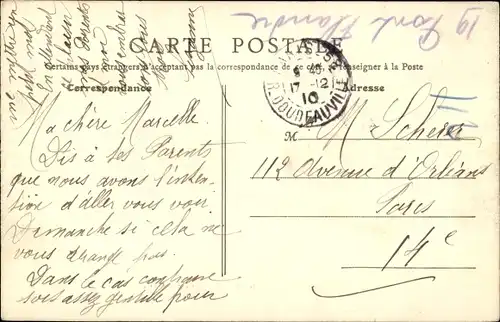 19 Pont Flandre
CARTE POSTALE
Certains pays étrangers n'acceptant pas la correspondance de ce côté, se renseigner à la Poste
Correspondance
Adresse
17-12
10
R. DOUDEAUVILLE
Ma chère Marcelle.
Dis à tes Parents
que nous avons l'inten-
tion d'aller vous voir
Dimanche si cela ne
vous dérange pas.
Dans le cas contraire
sois assez gentille pour
M
M. Scherer
112 Avenue d'Orléans
Paris
14e
un mot
En attendant
le plaisir